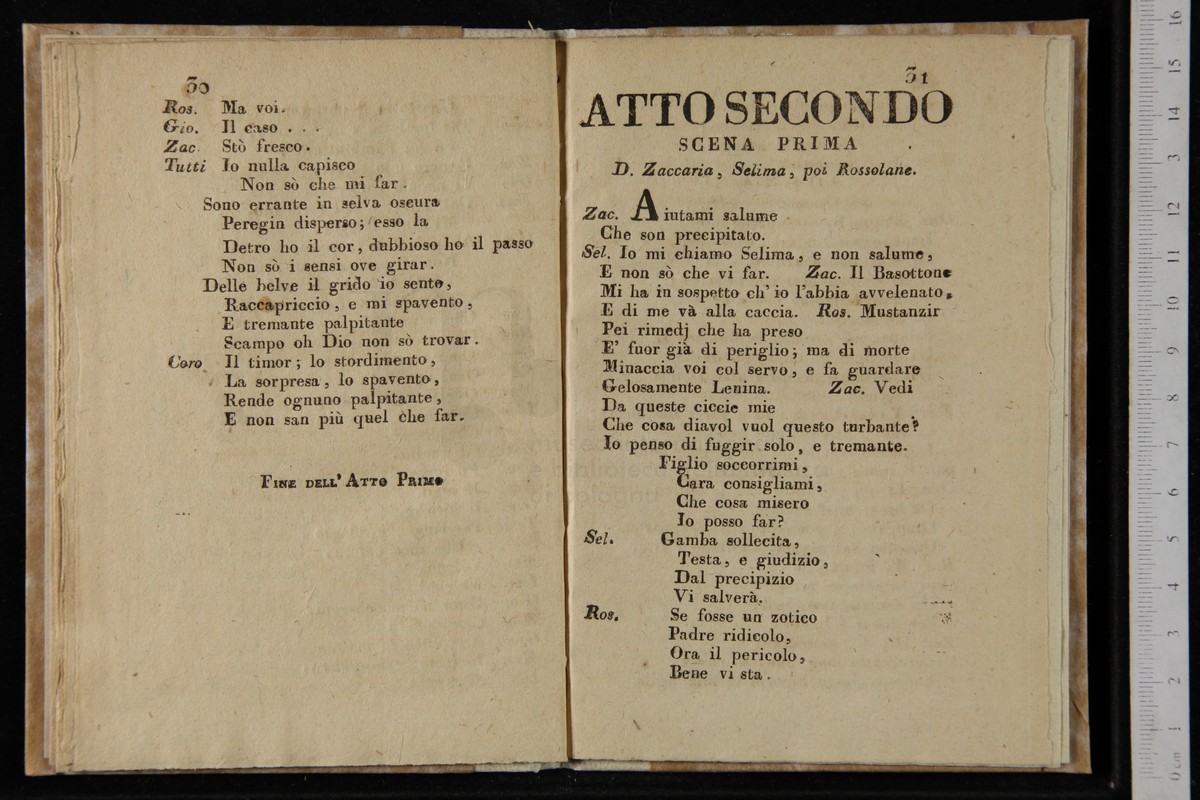 30
Ros. Ma voi.
Gio. Il caso . . .
Zac. Stò fresco.
Tutti Io nulla capisco
Non sò che mi far.
Sono errante in selva oscura
Peregin disperso; esso la
Detro ho il cor, dubbioso ho il passo
Non sò i sensi ove girar.
Delle belve il grido io sento,
Raccapriccio, e mi spavento,
E tremante palpitante
Scampo oh Dio non sò trovar.
Coro Il timor; lo stordimento,
La sorpresa, lo spavento,
Rende ognuno palpitante,
E non san più quel che far.
FINE DELL' ATTO PRIMO
31
ATTO SECONDO
SCENA PRIMA
D. Zaccaria, Selima, poi Rossolane.
Zac. Aiutami salume
Che son precipitato.
Sel. Io mi chiamo Selima, e non salume,
E non sò che vi far. Zac. Il Basottone
Mi ha in sospetto ch' io l'abbia avvelenato,
E di me và alla caccia. Ros. Mustanzir
Pei rimedj che ha preso
E' fuor già di periglio; ma di morte
Minaccia voi col servo, e fa guardare
Gelosamente Lenina. Zac. Vedi
Da queste ciccie mie
Che cosa diavol vuol questo turbante?
Io penso di fuggir solo, e tremante.
Figlio soccorrimi,
Cara consigliami,
Che cosa misero
Io posso far?
Sel. Gamba sollecita,
Testa, e giudizio,
Dal precipizio
Vi salverà.
Ros. Se fosse un zotico
Padre ridicolo,
Ora il pericolo,
Bene vi sta.
0 cm 1 2 3 4 5 6 7 8 9 10 11 12 13 14 15 16